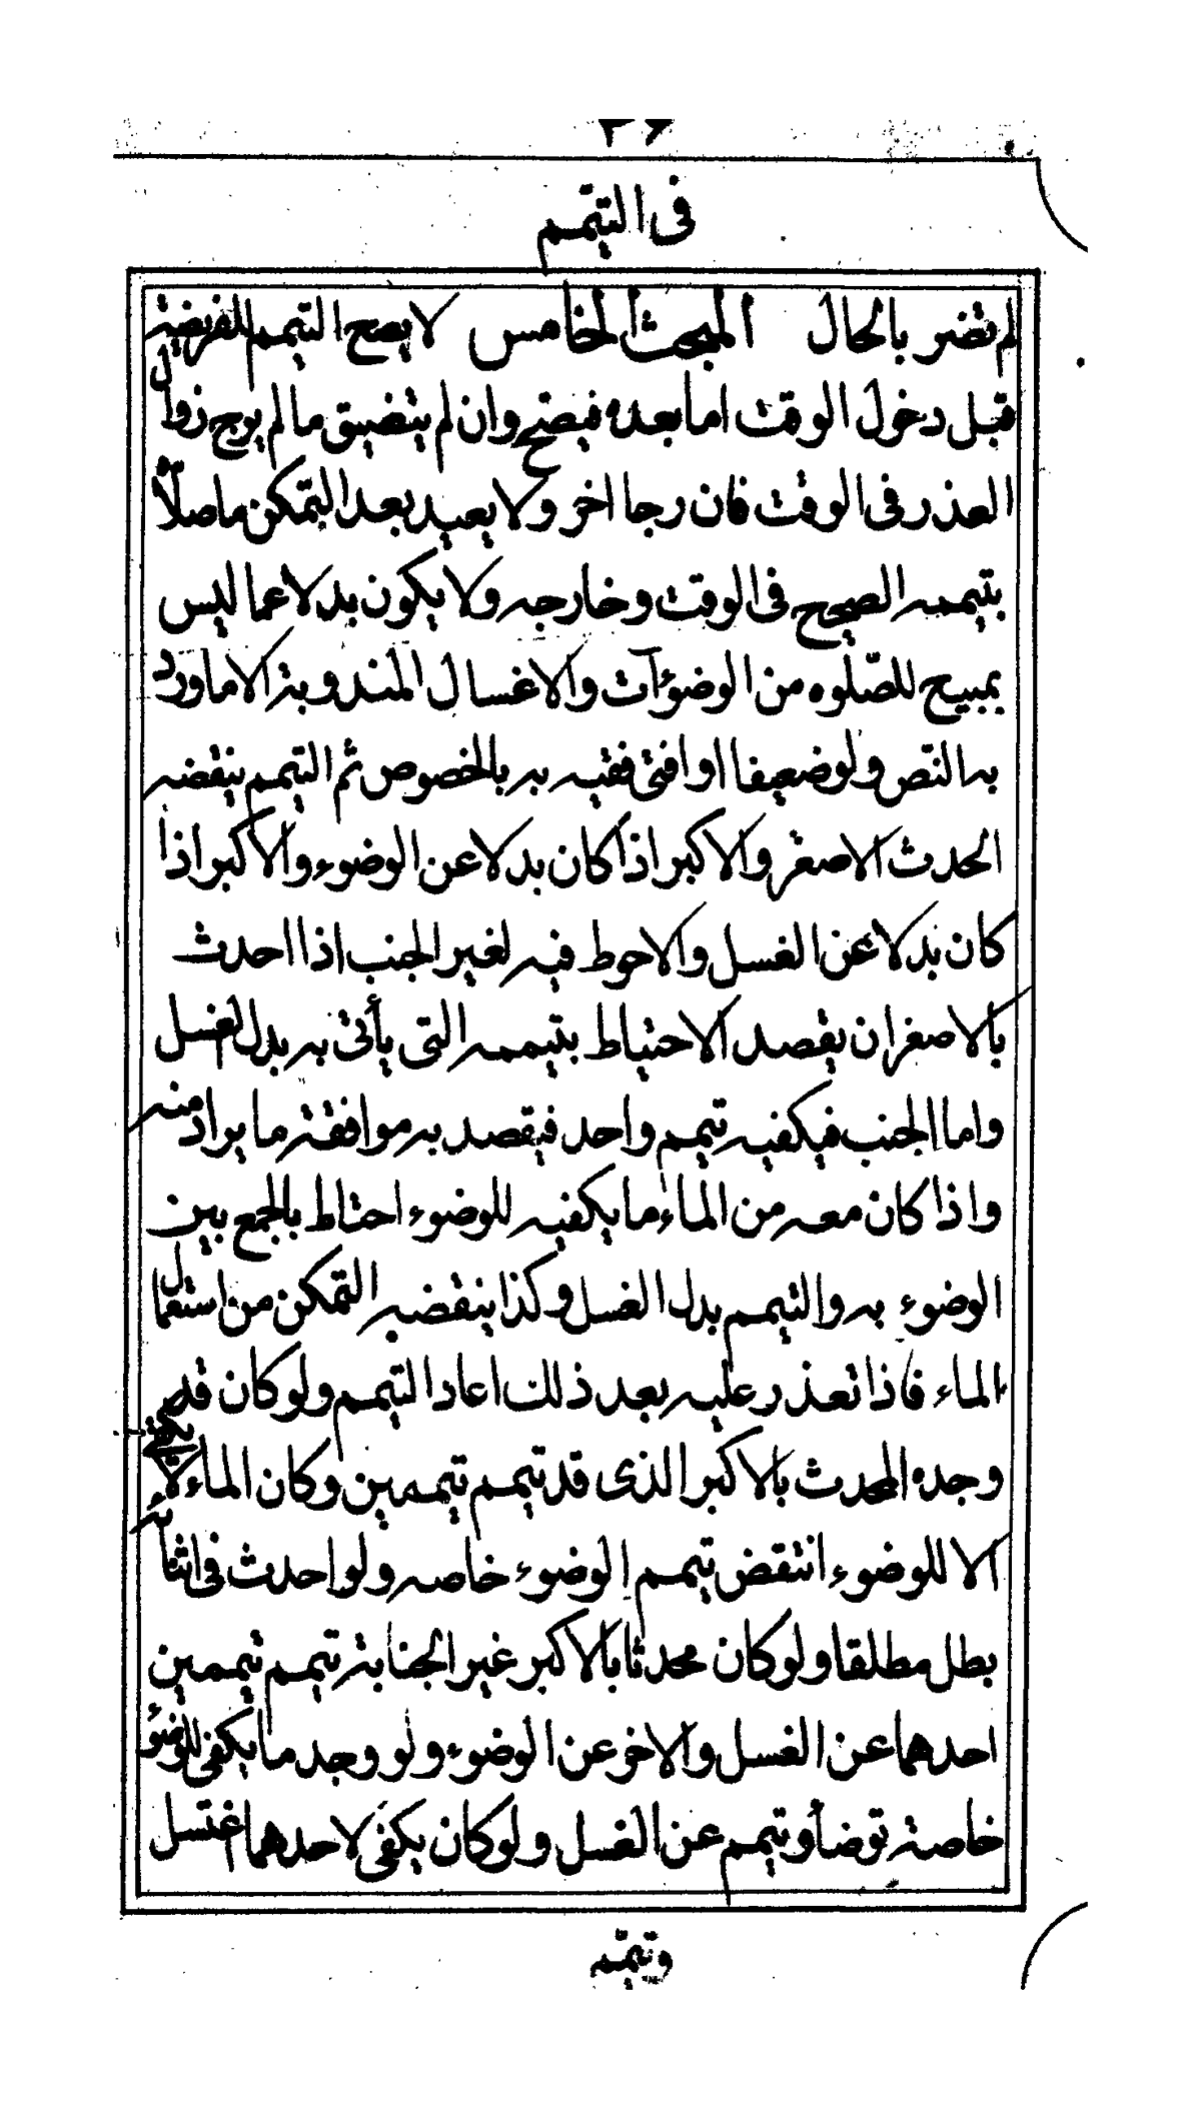 ٣۶
فى التيمم
لم تضر بالحال المبحث الخامس لا يصح التيمم للفريضة
قبل دخول الوقت اما بعده فيصح وان لم يتضيق ما لم يرج زوال
العذر فى الوقت فان رجا اخر ولا يعيد بعد التمكن ما صلاه
بتيممه الصحيح فى الوقت وخارجه ولا يكون بدلا عما ليس
بمبيح للصّلوه من الوضوءآت والاغسال المندوبة الا ما ورد
به النّص ولو ضعيفا او افتى فقيه به بالخصوص ثم التيمم ينقضه
الحدث الاصغر والاكبر اذا كان بدلا عن الوضوء والاكبر اذا
كان بدلا عن الغسل والاحوط فيه لغير الجنب اذا احدث
بالاصغر ان يقصد الاحتياط بتيممه التى يأتى به بدل الغسل
واما الجنب فيكفيه تيمم واحد فيقصد به موافقة ما يراد منه
واذا كان معه من الماء ما يكفيه للوضوء احتاط بالجمع بين
الوضوء به والتيمم بدل الغسل وكذا ينقضه التمكن من استعمال
الماء فاذا تعذر عليه بعد ذلك اعاد التيمم ولو كان قد
وجده المحدث بالاكبر الذى قد تيمم تيممين وكان الماء لا يكفى
الا للوضوء انتقض تيمم الوضوء خاصه ولو احدث فى اثنائه
بطل مطلقا ولو كان محدثا بالاكبر غير الجنابة تيمم تيممين
احدهما عن الغسل والاخر عن الوضوء ولو وجد ما يكفى للوضوء
خاصة توضأ وتيمم عن الغسل ولو كان يكفى لاحدهما اغتسل
وتيمّم